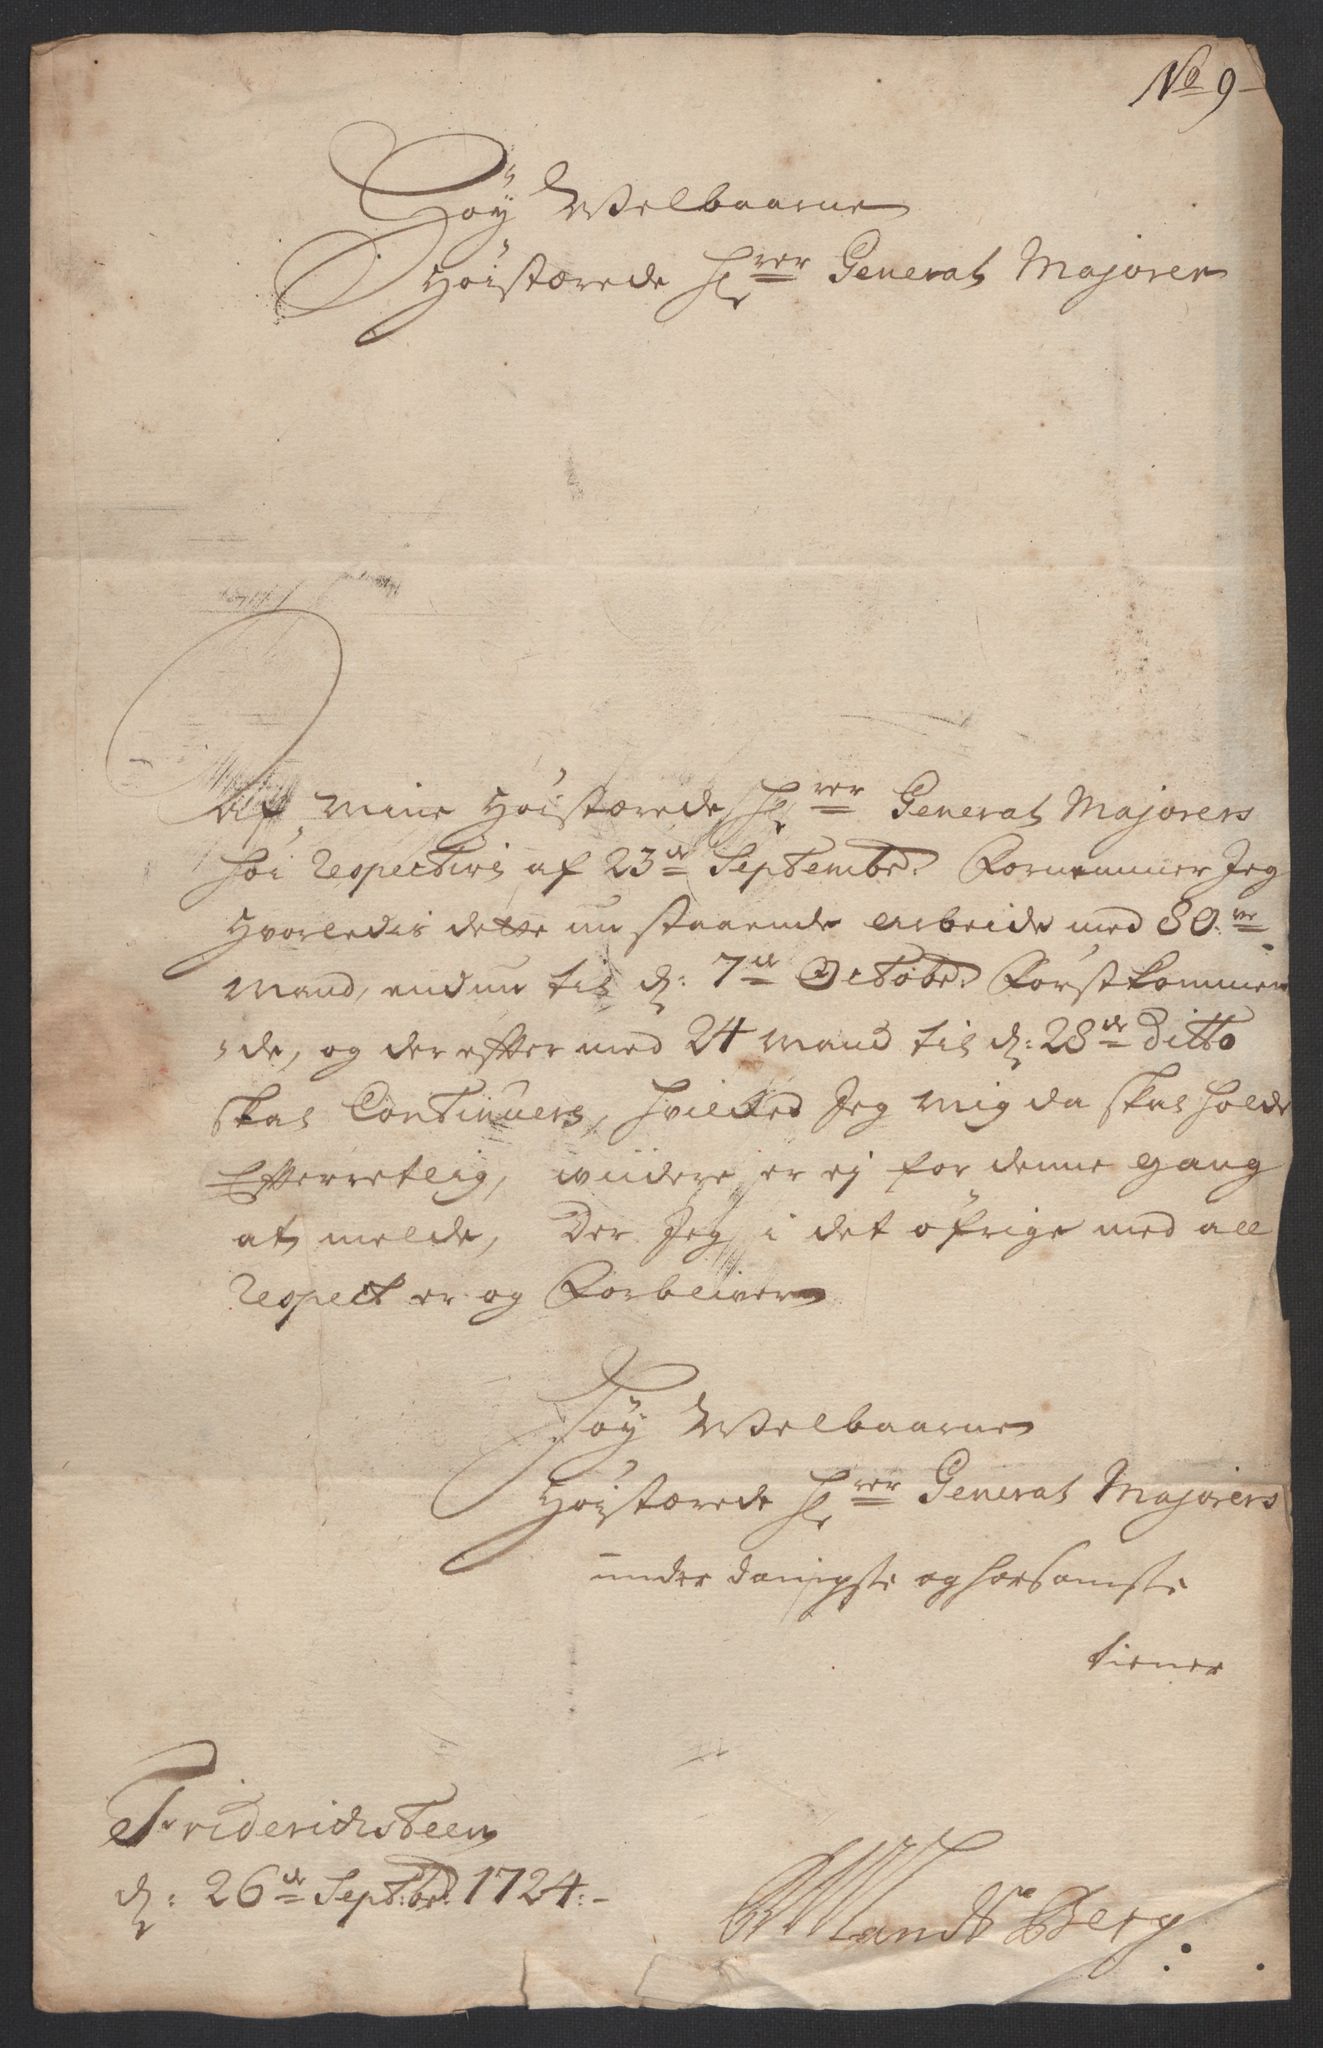 No 9
Høy Welbaarne
Høistærede Hr rer General Majoren
Af mine Høistærede Hr rer General Majorers
høi respective af 23de Septembr. Fornemmer Jeg
Hvorledis dette nu staaende Arbeide med 80: ve
Mand, endnu til d: 7de Octobr. Først kommen
de, og der efter med 24 Mand til d: 28de Ditto
skal Continuers, hvilcked Jeg mig da skal holde
Efterretlig, wiidere er ej for denne gang
at melde, Der Jeg i det øfrige med all
respect er og Forbliver
Høy Welbaarne
Høistærede Hr rer General Majorers
under danigste og horsamste
tiener
Friderichsteen
d: 26de Septbr: 1724:-
Landtsberg.